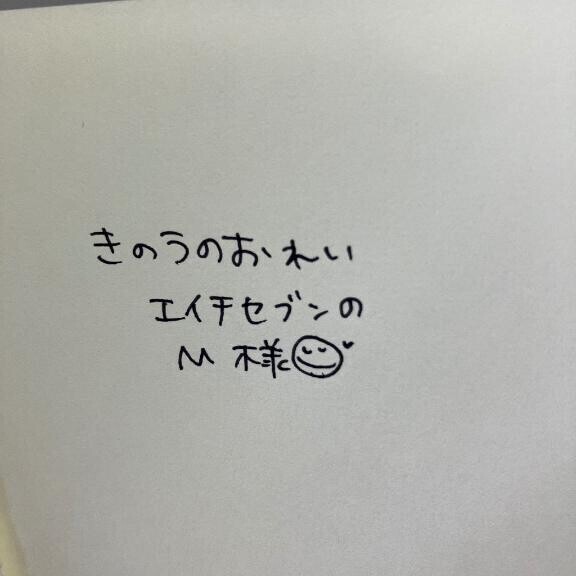 きのうのおれい
エイチセブンの
M 様